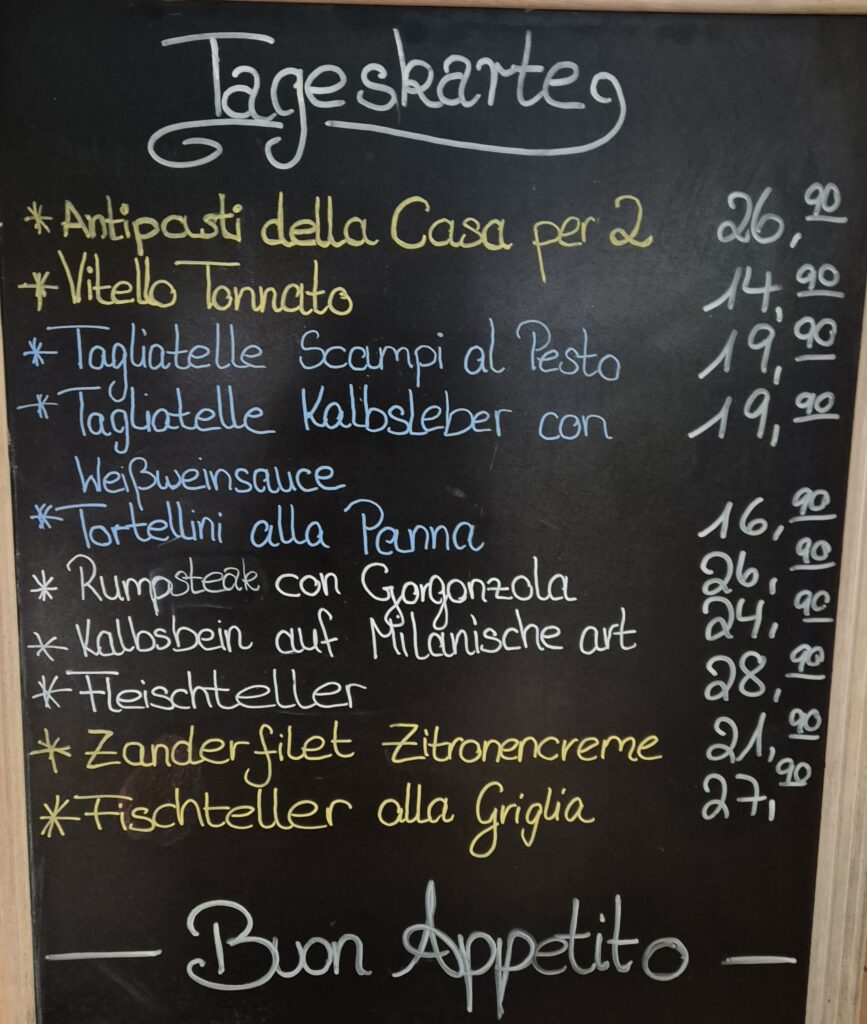 Tageskarte
* Antipasti della Casa per 2 26,90
* Vitello Tonnato 14,90
* Tagliatelle Scampi al Pesto 19,90
* Tagliatelle Kalbsleber con 19,90
Weißweinsauce
* Tortellini alla Panna 16,90
* Rumpsteak con Gorgonzola 26,90
* Kalbsbein auf Milanische art 24,90
* Fleischteller 28,90
* Zanderfilet Zitronencreme 21,90
* Fischteller alla Griglia 27,90
— Buon Appetito —